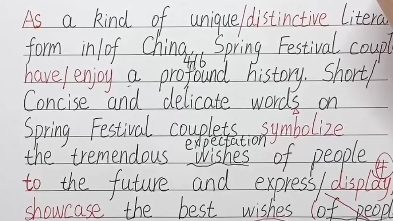 As a kind of unique/distinctive litera
form in/of China, Spring Festival coupl
4'16
have/enjoy a profound history. Short/
Concise and delicate words on
Spring Festival couplets symbolize
expectation
the tremendous wishes of people
to the future and express/display/
showcase the best wishes (of peopl